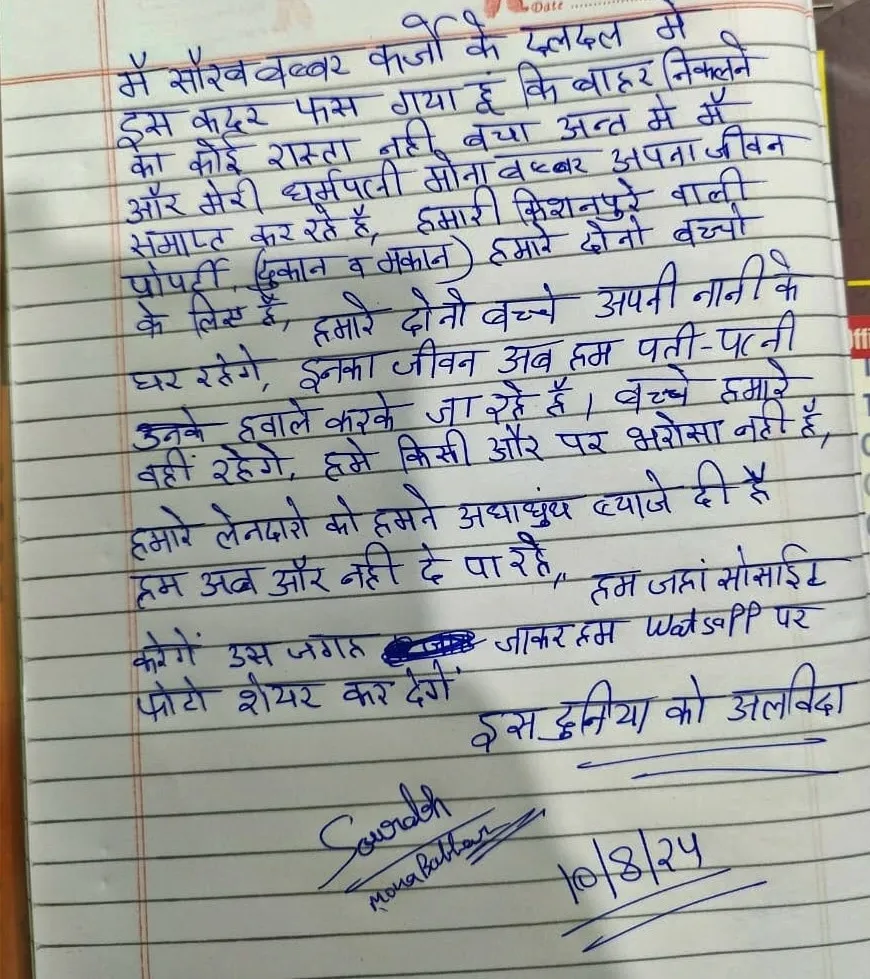 Date
मैं सौरव बब्बर कर्जो के दलदल मे
इस कदर फस गया हूं कि बाहर निकलने
का कोई रास्ता नही बचा अन्त मे मैं
और मेरी धर्मपत्नी मोना बब्बर अपना जीवन
समाप्त कर रहे है, हमारी किशनपुरे वाली
प्रोपर्टी, (दुकान व मकान) हमारे दोनो बच्चो
के लिए है, हमारे दोनो बच्चे अपनी नानी के
घर रहेगे, इनका जीवन अब हम पती-पत्नी
उनके हवाले करके जा रहे है। बच्चे हमारे
वहीं रहेगे, हमे किसी और पर भरोसा नही है,
हमारे लेनदारो को हमने अधाधुंध ब्याजे दी है
हम अब और नही दे पा रहे,, हम जहां सोसाईट
करेगें उस जगह जाकर हम Watsapp पर
फोटो शेयर कर देगें
इस दुनिया को अलविदा
Sourabh
Mona Babbar
10/8/24